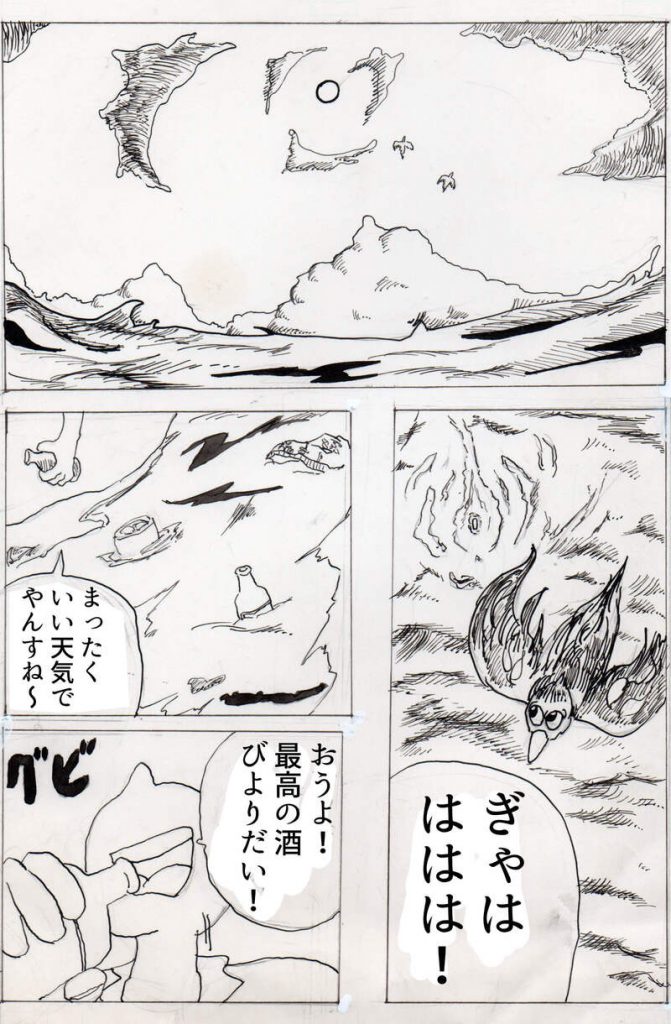 ぎゃは
ははは！
まったく
いい天気で
やんすね～
おうよ！
最高の酒
びよりだい！
グビ